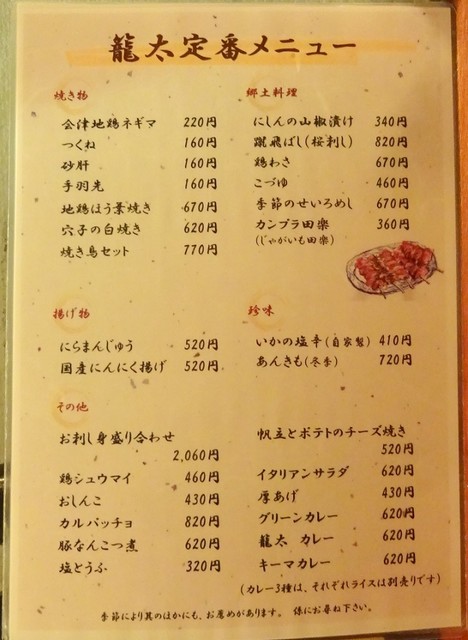 龍太定番メニュー
焼き物
会津地鶏ネギマ 220円
つくね 160円
砂肝 160円
手羽先 160円
地鶏ほう葉焼き 670円
穴子の白焼き 620円
焼き鳥セット 770円
郷土料理
にしんの山椒漬け 340円
蹴飛ばし(桜刺し) 820円
鶏わさ 670円
こづゆ 460円
季節のせいろめし 670円
カンプラ田楽 360円
(じゃがいも田楽)
揚げ物
にらまんじゅう 520円
国産にんにく揚げ 520円
珍味
いかの塩辛(自家製) 410円
あんきも(冬季) 720円
その他
お刺し身盛り合わせ
2,060円
鶏シュウマイ 460円
おしんこ 430円
カルパッチョ 820円
豚なんこつ煮 620円
塩とうふ 320円
帆立とポテトのチーズ焼き
520円
イタリアンサラダ 620円
厚あげ 430円
グリーンカレー 620円
龍太 カレー 620円
キーマカレー 620円
(カレー3種は、それぞれライスは別売りです)
季節により其のほかにも、お薦めがあります。 係にお尋ね下さい。